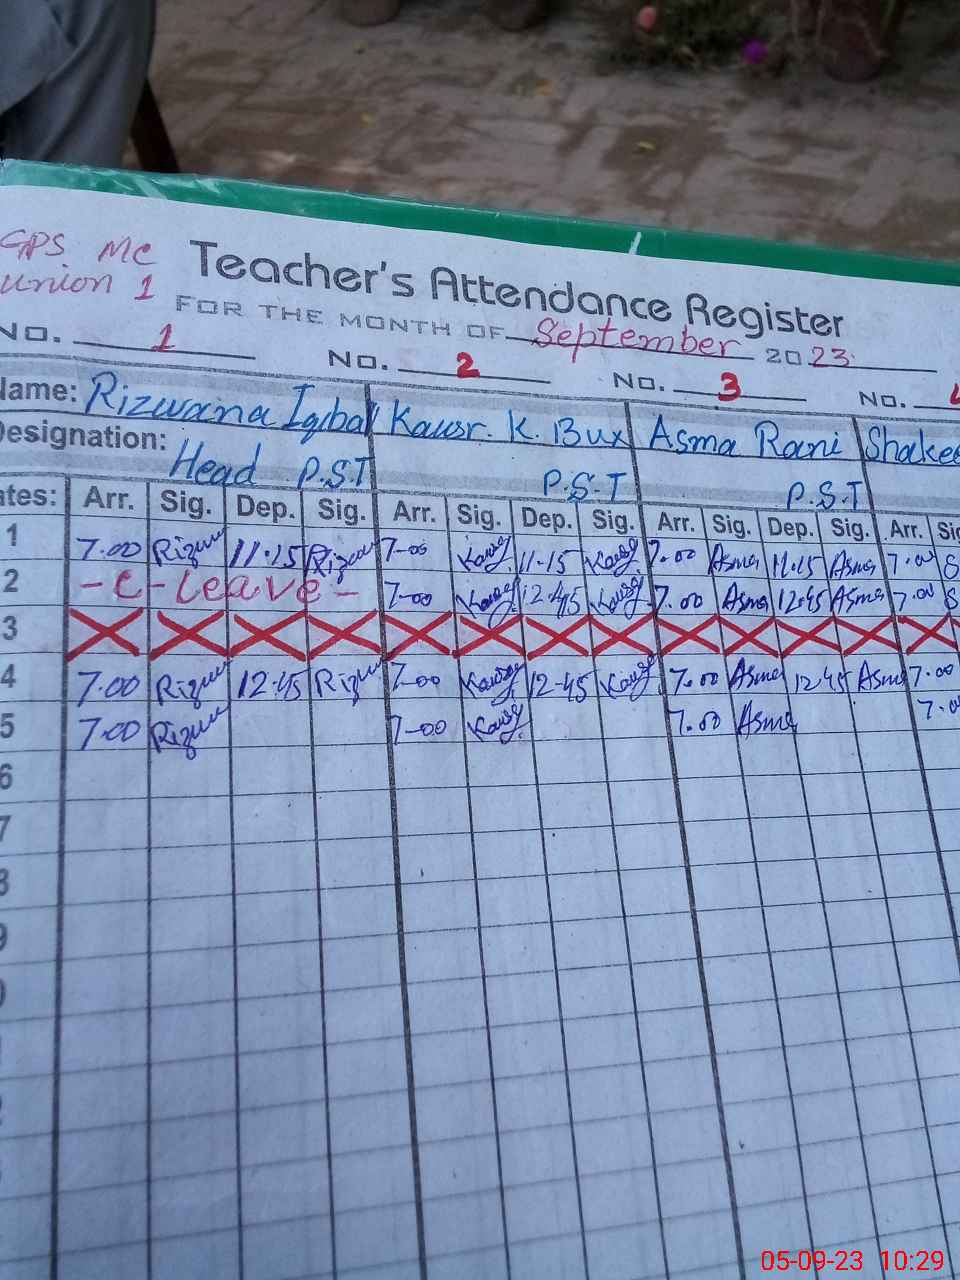 GPS MC
Union 1
Teacher's Attendance Register
FOR THE MONTH OF September 2023
No. 1 No. 2 No. 3 No. 4
Name: Rizwana Iqbal Kausr. K. Bux Asma Rani Shakee
Designation: Head P.S.T P.S.T P.S.T
ates: Arr. Sig. Dep. Sig. Arr. Sig. Dep. Sig. Arr. Sig. Dep. Sig. Arr. Sig
1 7.00 Rizwana 11.15 Rizwana 7-00 Kausr 11-15 Kausr 7.00 Asma 11.15 Asma 7.00 S
2 -C-Leave- 7-00 Kausr 12-45 Kausr 7.00 Asma 12.45 Asma 7.00 S
3
4 7.00 Rizwana 12.45 Rizwana 7-00 Kausr 12-45 Kausr 7.00 Asma 12.45 Asma 7.00
5 7.00 Rizwana 7-00 Kausr 7.00 Asma 7.00
6
7
8
9
05-09-23 10:29